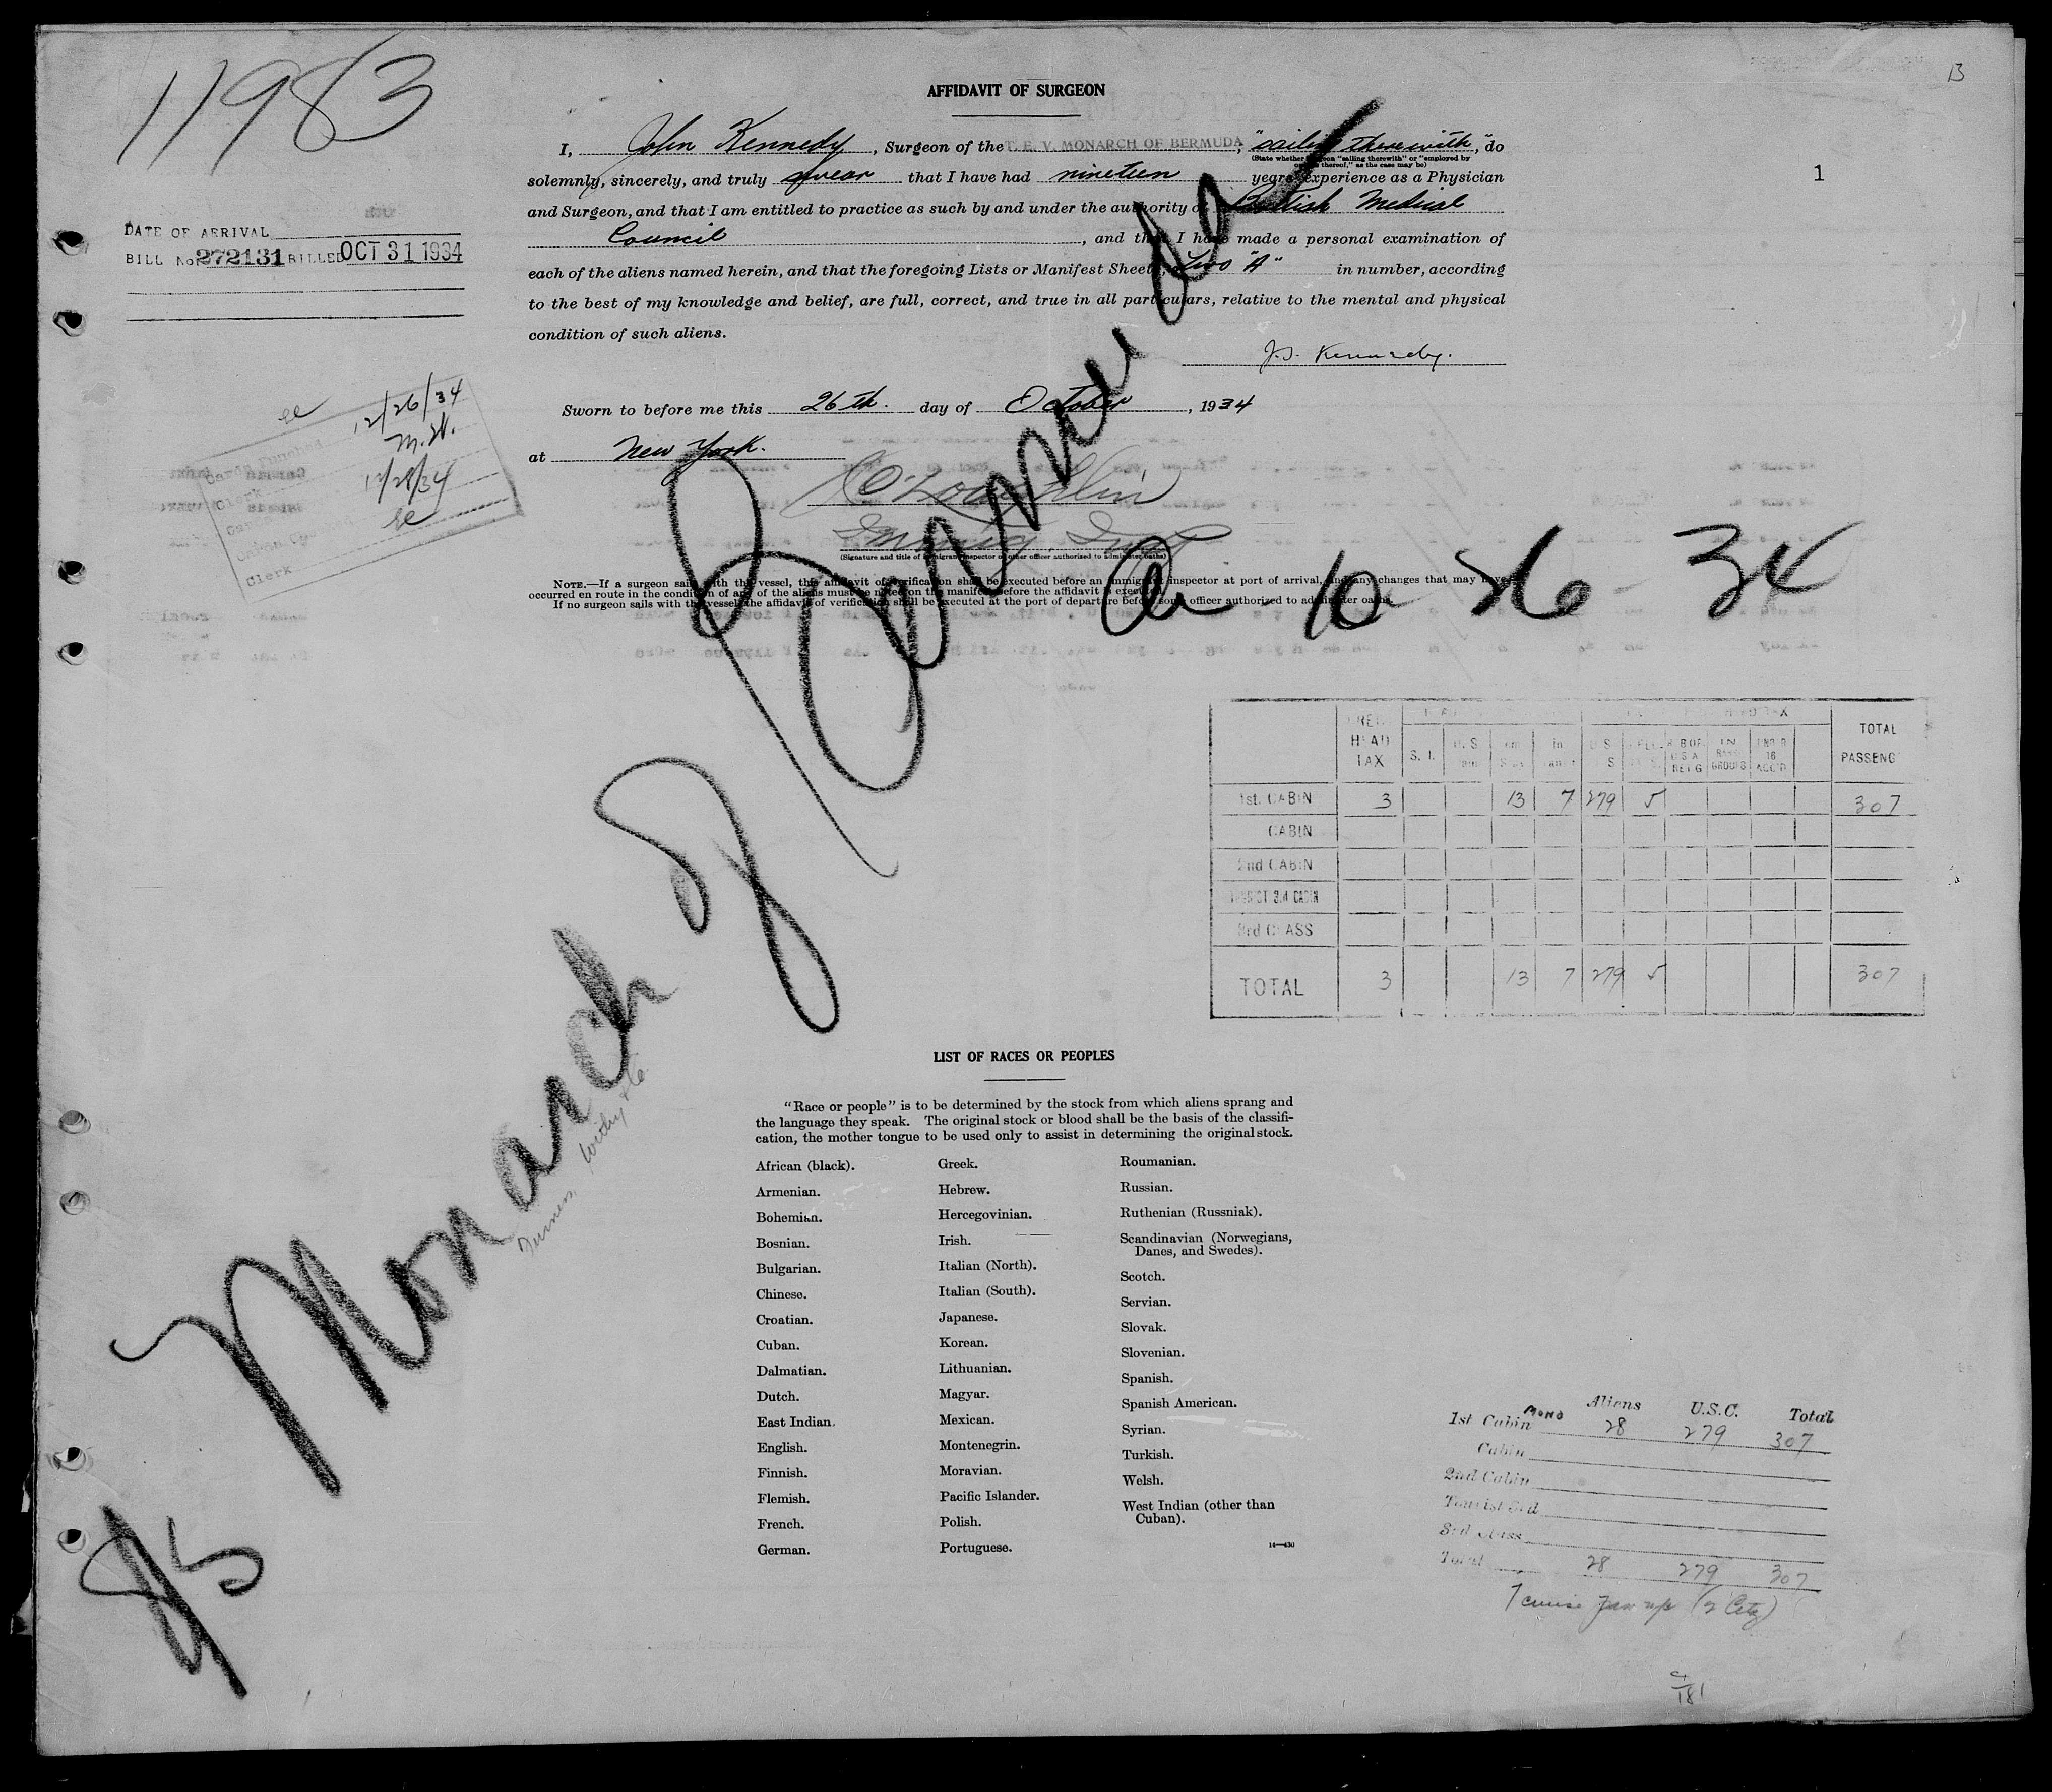 11983
13
AFFIDAVIT OF SURGEON
I, John Kennedy, Surgeon of the T. E. V. MONARCH OF BERMUDA, "sailing therewith", do
(State whether surgeon "sailing therewith" or "employed by owners thereof," as the case may be)
solemnly, sincerely, and truly swear that I have had nineteen years experience as a Physician
1
and Surgeon, and that I am entitled to practice as such by and under the authority of British Medical
Council, and that I have made a personal examination of
each of the aliens named herein, and that the foregoing Lists or Manifest Sheets, two "A" in number, according
to the best of my knowledge and belief, are full, correct, and true in all particulars, relative to the mental and physical
condition of such aliens.
J.S. Kennedy.
DATE OF ARRIVAL
BILL No. 272131 BILLED OCT 31 1934
Sworn to before me this 26th. day of October, 1934
at New York.
12/26/34
12/28/34
Clerk
Clerk
(Signature and title of immigrant inspector or other officer authorized to administer oaths)
NOTE.—If a surgeon sails with the vessel, this affidavit of verification shall be executed before an immigrant inspector at port of arrival, and any changes that may have
occurred en route in the condition of any of the aliens must be noted on the manifest before the affidavit is executed.
If no surgeon sails with the vessel, the affidavit of verification shall be executed at the port of departure before some officer authorized to administer oaths.
Monarch of Bermuda
10 - 26 - 34
HEAD TAX
S. I.
TOTAL PASSENG
1st. CABIN 3 13 7 279 5 307
CABIN
2nd CABIN
3rd CABIN
3rd CLASS
TOTAL 3 13 7 279 5 307
LIST OF RACES OR PEOPLES
"Race or people" is to be determined by the stock from which aliens sprang and
the language they speak. The original stock or blood shall be the basis of the classifi-
cation, the mother tongue to be used only to assist in determining the original stock.
African (black).
Armenian.
Bohemian.
Bosnian.
Bulgarian.
Chinese.
Croatian.
Cuban.
Dalmatian.
Dutch.
East Indian.
English.
Finnish.
Flemish.
French.
German.
Greek.
Hebrew.
Hercegovinian.
Irish.
Italian (North).
Italian (South).
Japanese.
Korean.
Lithuanian.
Magyar.
Mexican.
Montenegrin.
Moravian.
Pacific Islander.
Polish.
Portuguese.
Roumanian.
Russian.
Ruthenian (Russniak).
Scandinavian (Norwegians,
Danes, and Swedes).
Scotch.
Servian.
Slovak.
Slovenian.
Spanish.
Spanish American.
Syrian.
Turkish.
Welsh.
West Indian (other than
Cuban).
14—430
Aliens U.S.C. Total
1st Cabin MONO 28 279 307
Cabin
2nd Cabin
Tourist 3rd
3rd Class
Total 28 279 307